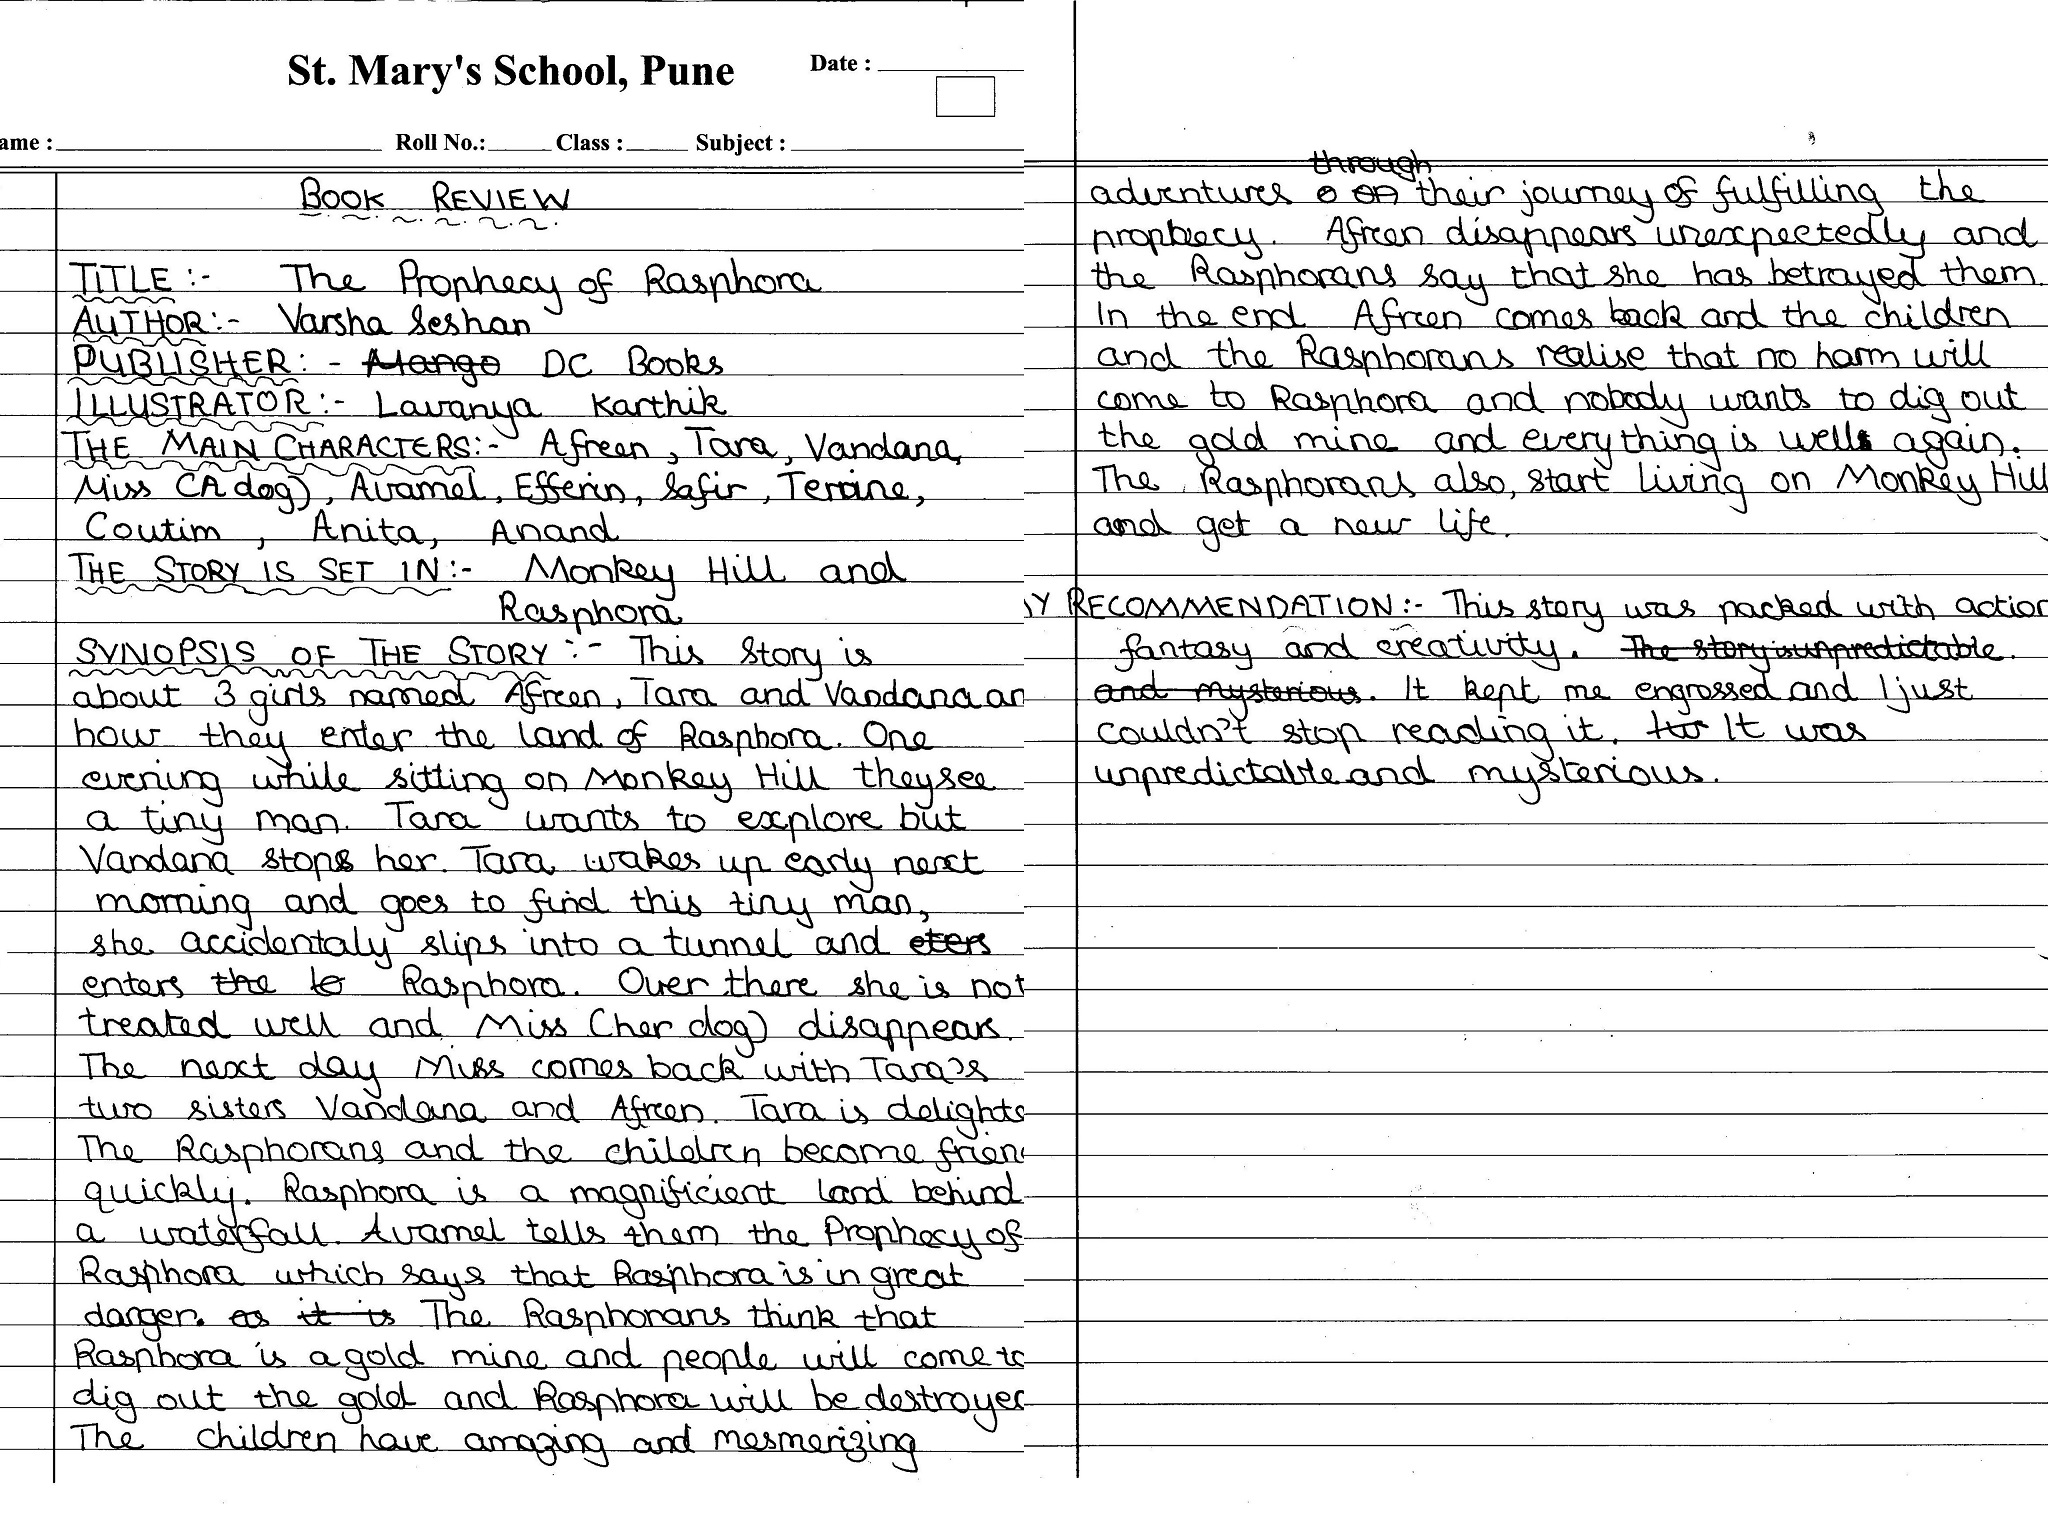 St. Mary's School, Pune
Date :
ame :
Roll No.:
Class :
Subject :
BOOK REVIEW
TITLE :- The Prophecy of Rasphora
AUTHOR:- Varsha Seshan
PUBLISHER: - Mango DC Books
ILLUSTRATOR:- Lavanya Karthik
THE MAIN CHARACTERS:- Afreen, Tara, Vandana,
Miss (A dog), Avamel, Efferin, Safir, Teraine,
Coutim, Anita, Anand
THE STORY IS SET IN:- Monkey Hill and
Rasphora
SYNOPSIS OF THE STORY :- This Story is
about 3 girls named Afreen, Tara and Vandana an
how they enter the land of Rasphora. One
evening while sitting on Monkey Hill they see
a tiny man. Tara wants to explore but
Vandana stops her. Tara wakes up early next
morning and goes to find this tiny man,
she accidentaly slips into a tunnel and eters
enters the to Rasphora. Over there she is not
treated well and Miss (her dog) disappears.
The next day Miss comes back with Tara's
two sisters Vandana and Afreen. Tara is delighte
The Rasphorans and the children become frien
quickly. Rasphora is a magnificient land behind
a waterfall. Avamel tells them the Prophecy of
Rasphora which says that Rasphora is in great
danger. as it is The Rasphorans think that
Rasphora is a gold mine and people will come to
dig out the gold and Rasphora will be destroyed
The children have amazing and mesmerizing
through
adventures on their journey of fulfilling the
prophecy. Afreen disappears unexpectedly and
the Rasphorans say that she has betrayed them.
In the end Afreen comes back and the children
and the Rasphorans realise that no harm will
come to Rasphora and nobody wants to dig out
the gold mine and everything is well again.
The Rasphorans also, start living on Monkey Hill
and get a new life.
Y RECOMMENDATION:- This story was packed with action
fantasy and creativity. The story is unpredictable.
and mysterious. It kept me engrossed and I just
couldn't stop reading it. It was
unpredictable and mysterious.